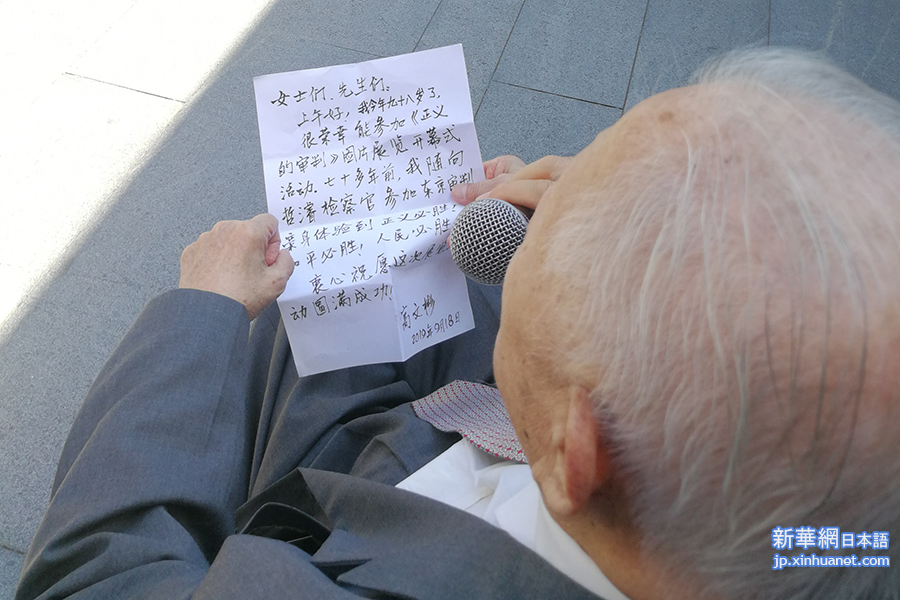 女士们、先生们、
上午好，我今年九十八岁了，
很荣幸能参加《正义
的审判》图片展览开幕式
活动。七十多年前，我随向
哲濬检察官参加东京审判
亲身体验到正义必胜！
和平必胜，人民必胜
衷心祝愿这次
动圆满成功！
高文彬
2019年9月18日
新華網日本語
jp.xinhuanet.com